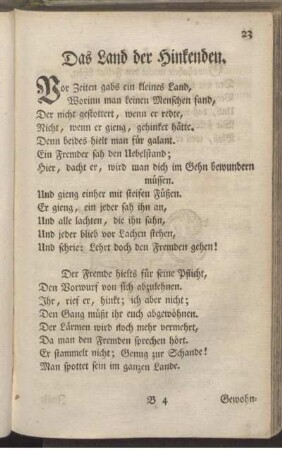 23
Das Land der Hinkenden.
Vor Zeiten gabs ein kleines Land,
Worinn man keinen Menschen fand,
Der nicht gestottert, wenn er redte,
Nicht, wenn er gieng, gehinket hätte.
Denn beides hielt man für galant.
Ein Fremder sah den Uebelstand;
Hier, dacht er, wird man dich im Gehn bewundern
müssen.
Und gieng einher mit steifen Füßen.
Er gieng, ein jeder sah ihn an,
Und alle lachten, die ihn sahn,
Und jeder blieb vor Lachen stehen,
Und schrie: Lehrt doch den Fremden gehen!
Der Fremde hielts für seine Pflicht,
Den Vorwurf von sich abzulehnen.
Ihr, rief er, hinkt; ich aber nicht;
Den Gang müßt ihr euch abgewöhnen.
Der Lärmen wird noch mehr vermehrt,
Da man den Fremden sprechen hört.
Er stammelt nicht; Genug zur Schande!
Man spottet sein im ganzen Lande.
B 4
Gewohn-